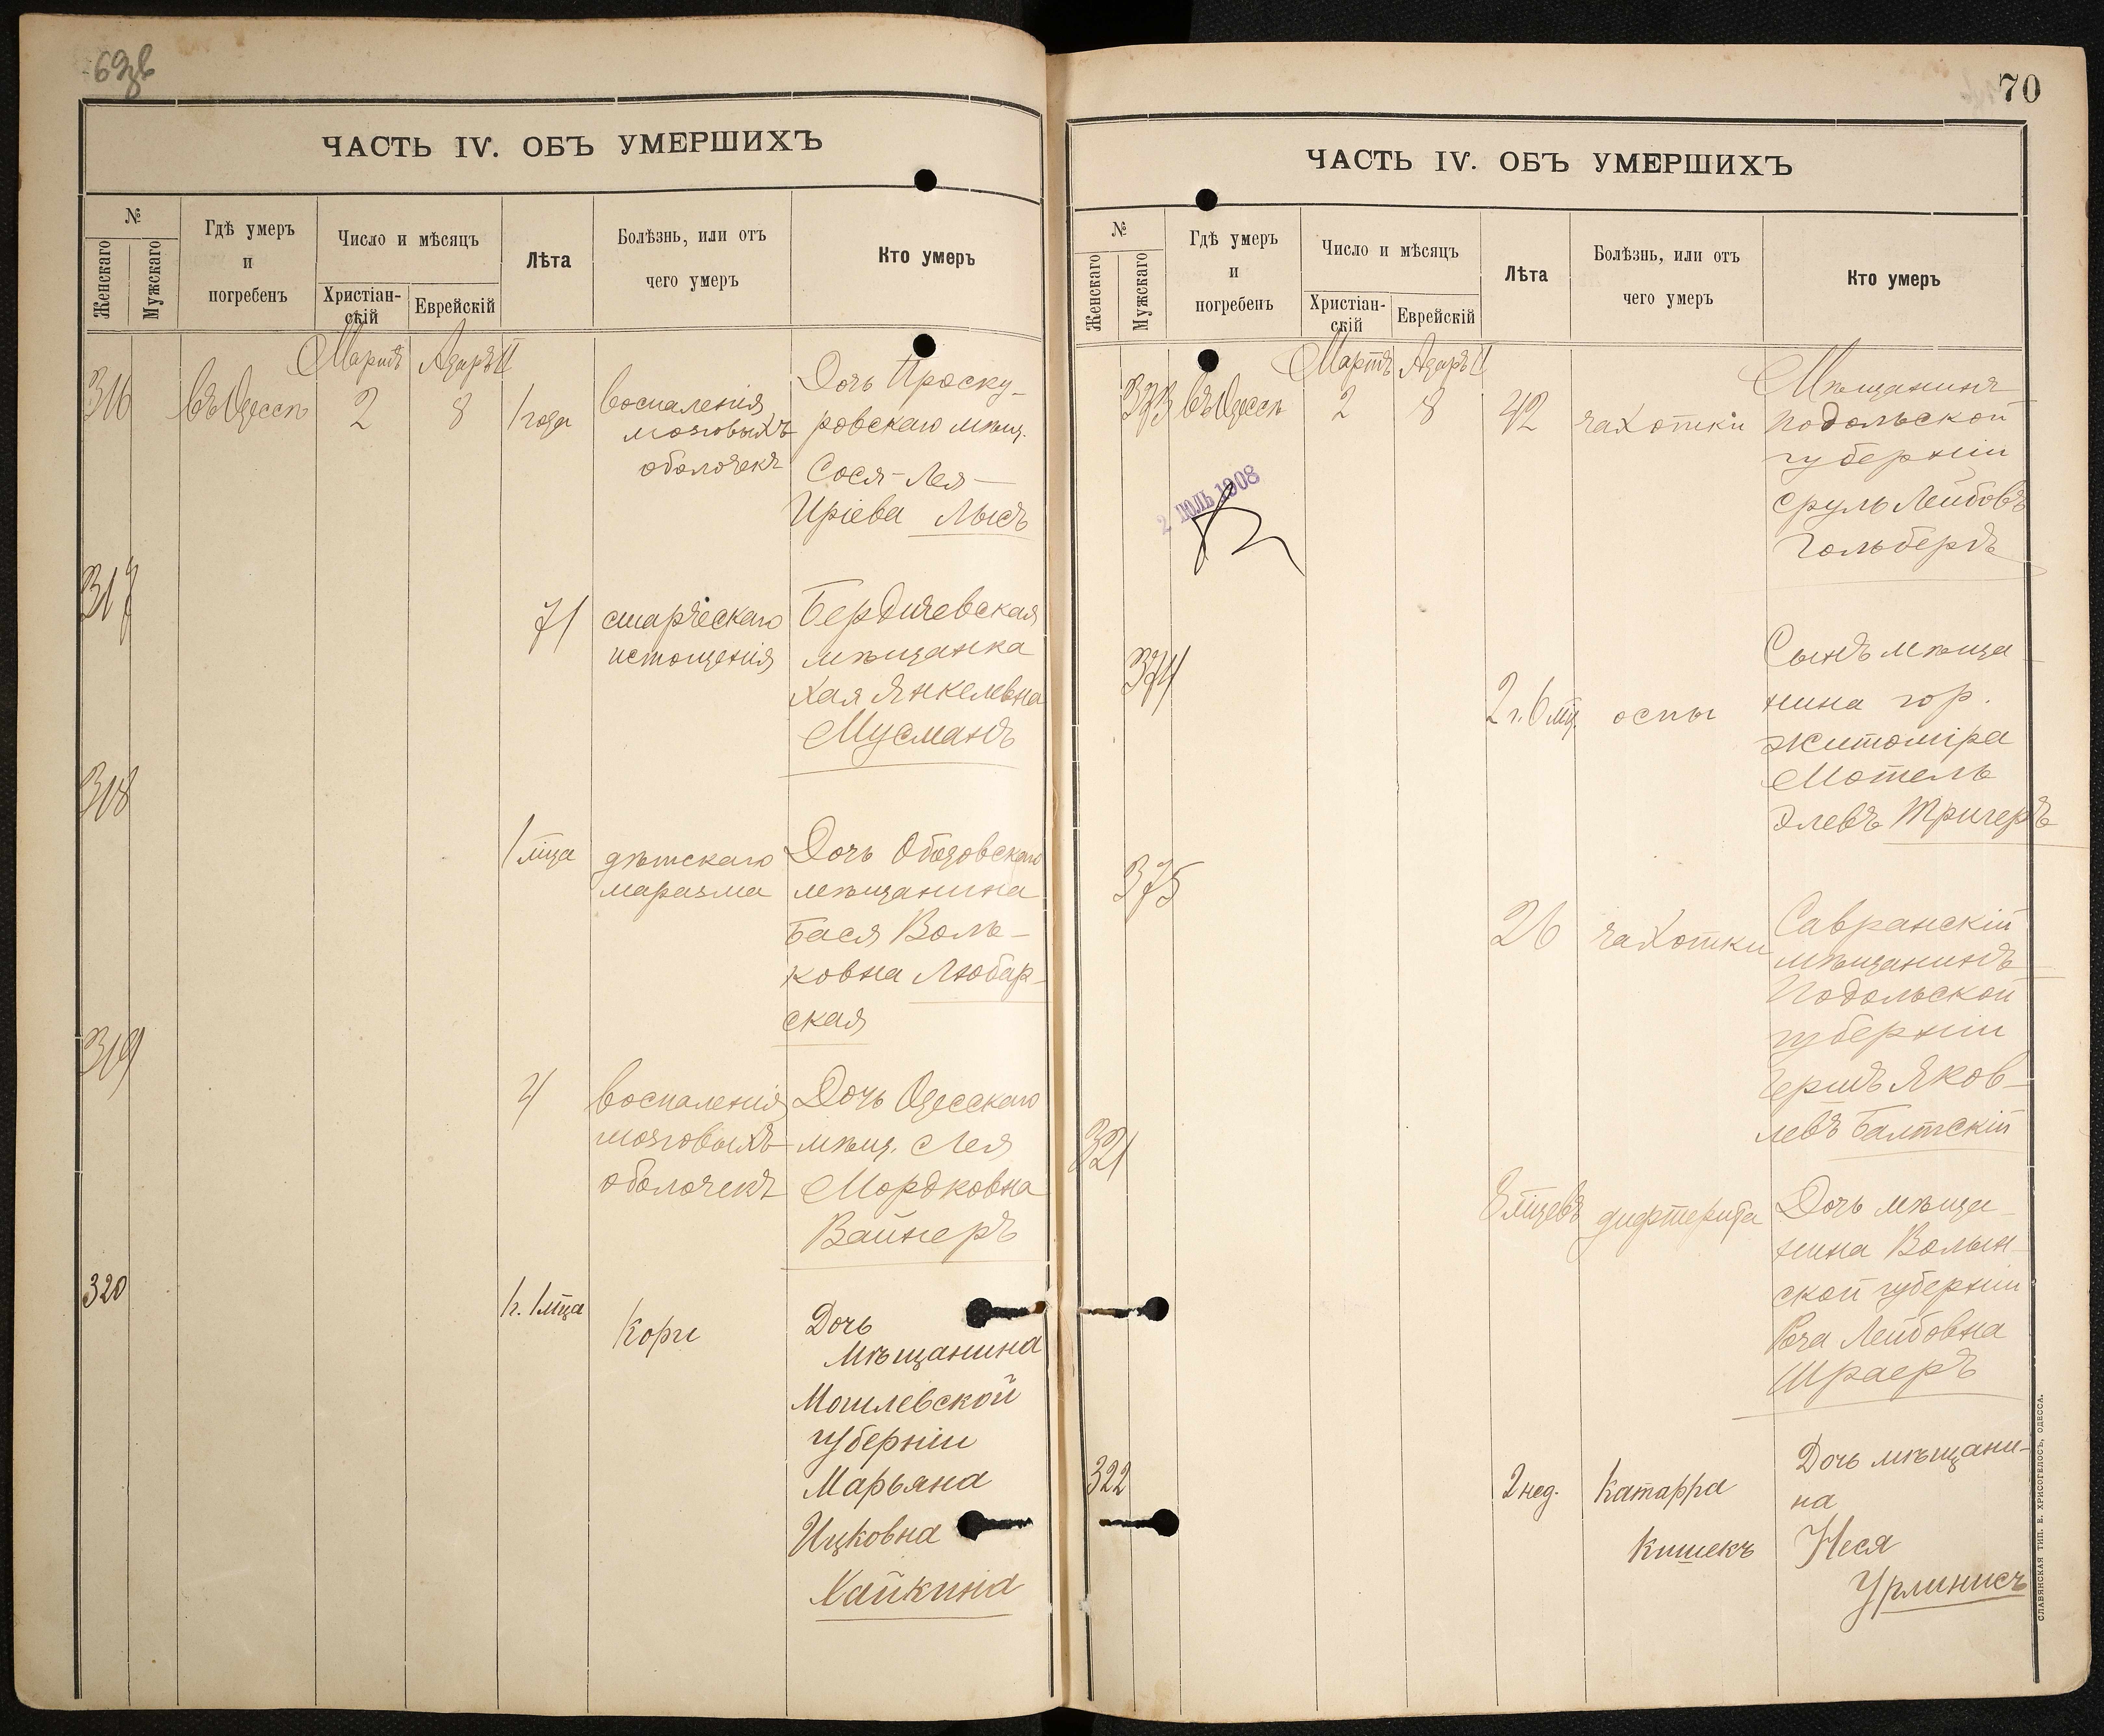 ЧАСТЬ IV. ОБЪ УМЕРШИХЪ
№
Женскаго
Мужскаго
Гдѣ умеръ
и
погребенъ
Число и мѣсяцъ
Христіан-
скій
Еврейскій
Лѣта
Болѣзнь, или отъ
чего умеръ
Кто умеръ
Мартъ Адаръ II
316 въ Одессѣ 2 8 1 года
воспаленія
мозговыхъ
оболочекъ
Дочь Проску-
ровскаго мѣщ.
Сося-Лея-
Иріева Лысъ
317 71
старческаго
истощенія
Бердичевская
мѣщанка
Хая Янкелевна
Мусманъ
318 1 мца
дѣтскаго
маразма
Дочь Ободовскаго
мѣщанина
Бася Воль-
ковна Любар-
ская
319 4
воспаленія
мозговыхъ
оболочекъ
Дочь Одесскаго
мѣщ. Лея
Мордковна
Вайнеръ
320 1 г. 1 мца
Кори
Дочь
мѣщанина
Могилевской
губерніи
Марьяна
Ицковна
Хайкина
70
ЧАСТЬ IV. ОБЪ УМЕРШИХЪ
№
Женскаго
Мужскаго
Гдѣ умеръ
и
погребенъ
Число и мѣсяцъ
Христіан-
скій
Еврейскій
Лѣта
Болѣзнь, или отъ
чего умеръ
Кто умеръ
Мартъ Адаръ II
373 въ Одессѣ 2 8 42 чахотки
Мѣщанинъ
Подольской
губерніи
Сруль Лейбовъ
Гольбергъ
2 ІЮЛЬ 1908
374 2 г. 6 мц. оспы
Сынъ мѣща-
нина гор.
Житоміра
Мотель
Элевъ Тригеръ
375 26 чахотки
Савранскій
мѣщанинъ
Подольской
губерніи
Гершъ Яков-
левъ Балтскій
321 8 мцевъ дифтерита
Дочь мѣща-
нина Волын-
ской губерніи
Лейбовна
Шраеръ
322 2 нед.
Катарра
Кишекъ
Дочь мѣщани-
на
Неся
Урлинисъ
СЛАВЯНСКАЯ ТИП. Е. ХРИСОГЕЛОСЪ, ОДЕССА.